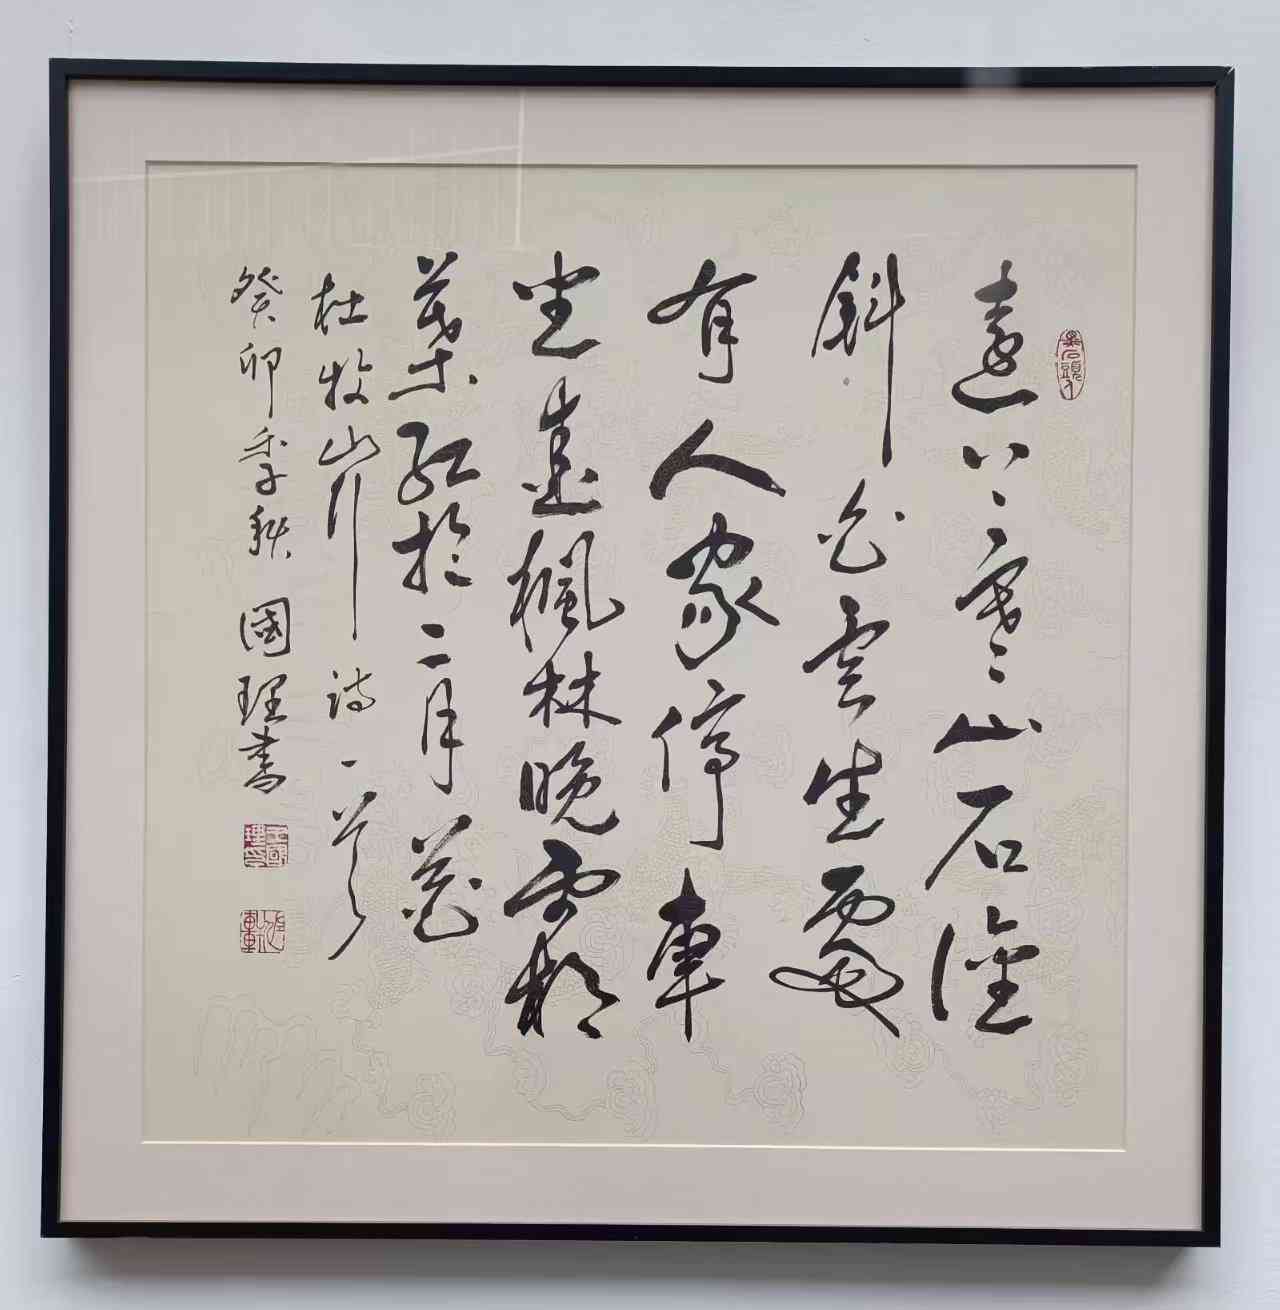 遠上寒山石徑
斜白雲生處
有人家停車
坐愛楓林晚霜
葉紅於二月花
杜牧山行詩一首
癸卯季秋 國理書
王國理印